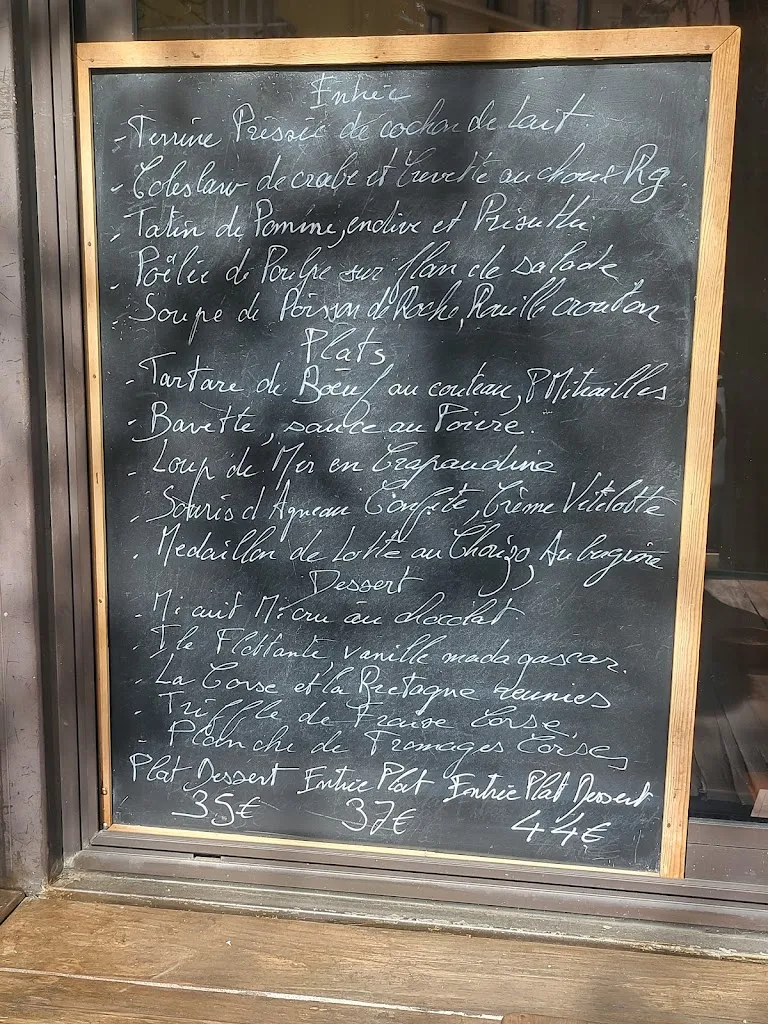 Entrée
- Terrine Pressée de cochon de Lait
- Coleslaw de crabe et Crevette au choux Rg.
- Tatin de Pomme, endive et Prisuttu
- Poêlée de Poulpe sur flan de salade
- Soupe de Poisson de Roche, Rouille croûton
Plats
- Tartare de Bœuf au couteau, P Mitrailles
- Bavette, sauce au Poivre.
- Loup de Mer en Crapaudine
- Souris d'Agneau Confite, Crème Vitelotte
- Medaillon de Lotte au Chorizo, Aubergine
Dessert
- Mi cuit Mi cru au chocolat
- Ile Flottante, vanille madagascar.
- La Corse et la Bretagne reunies
- Triffle de Fraise Corse,
- Planche de Fromages Corses
Plat Dessert Entrée Plat Entrée Plat Dessert
35€ 37€ 44€